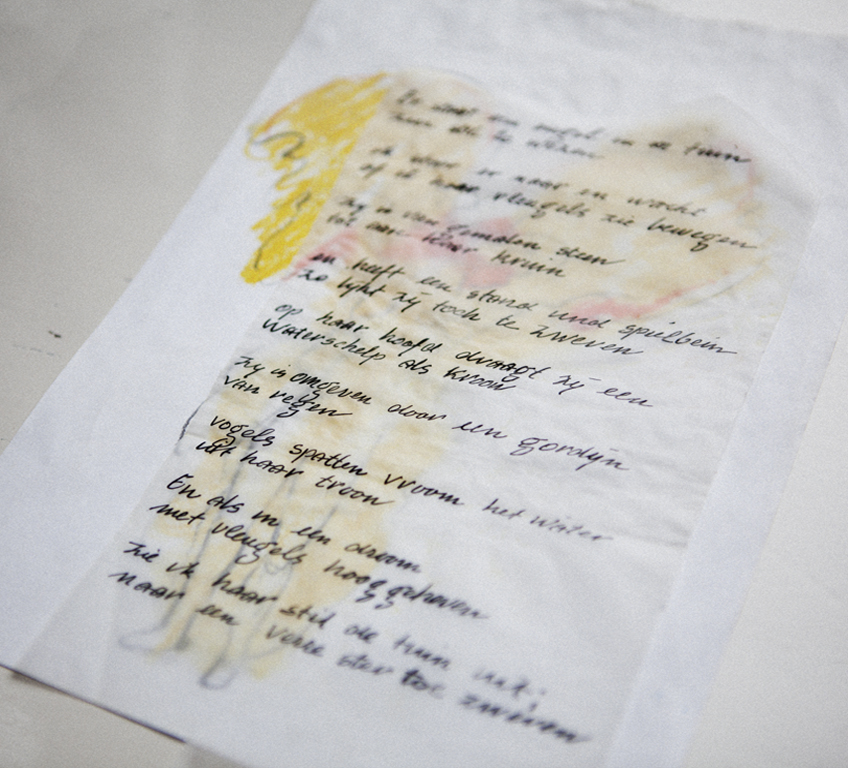 Er staat een engel in de tuin
ik staar er naar en wacht
of ik haar vleugels zie bewegen
Zij is van gemalen steen
tot aan haar kruin
en heeft een stand und spielbein
zo lijkt zij toch te zweven
op haar hoofd draagt zij een
Waterschelp als kroon
Zij is omgeven door een gordijn
van regen
vogels spatten vroom het water
uit haar troon
En als in een droom
met vleugels hoog geheven
zie ik haar stil de tuin uit;
naar een verre ster toe zweven